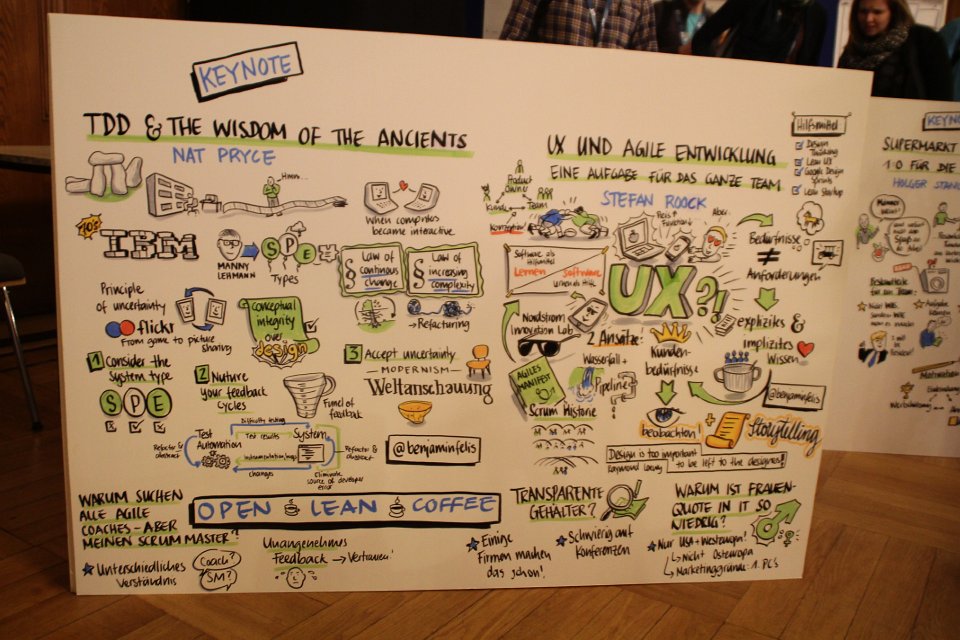 KEYNOTE
TDD & THE WISDOM OF THE ANCIENTS
NAT PRYCE
Hmm...
70s
IBM
MANNY
LEHMANN
SPE
Types
When computers
became interactive
§ Law of
continous
change
§ Law of
increasing
complexity
→ Refacturing
Principle
of uncertainty
flickr
From game to picture
sharing
conceptual
integrity
over
design
1 Consider the
System type
SPE
2 Nuture
your feedback
cycles
Funel of
feedback
3 Accept uncertainty
MODERNISM
Weltanschauung
@benjaminfelis
Difficulty testing
Refactor &
abstract
Test
Automation
Test results
System
changes
Refactor &
abstract
Eliminate
source of developer
error
UX UND AGILE ENTWICKLUNG
EINE AUFGABE FÜR DAS GANZE TEAM
STEFAN ROOCK
Hilfsmittel
Design
Thinking
Lean UX
Google Design
Sprints
Lean Startup
Product
Owner
Kunde
Team
Software als
Hilfsmittel
Lernen
Software
UX?!
Aber..
Bedürfnisse
≠
Anforderungen
Nordstrom
Innovation Lab
2 Ansätze:
Wasserfall +
Pipeline
AGILES
MANIFEST
Scrum Historie
Kunden-
bedürfnisse
expliziks &
implizites
Wissen
@benjaminfelis
beobachten!
+ Storytelling
Design is too important
to be left to the designers!
Raymond Loewy
WARUM SUCHEN
ALLE AGILE
COACHES - ABER
KEINEN SCRUM MASTER?
Unterschiedliches
Verständnis
Coach?
SM?
OPEN LEAN COFFEE
Unangenehmes
Feedback → Vertrauen!
TRANSPARENTE
GEHÄLTER?
Einige
Firmen machen
das schon!
Schwierig auf
Konferenzen
WARUM IST FRAUEN-
QUOTE IN IT SO
NIEDRIG?
Nur USA + Westeuropa!
↳ Nicht Osteuropa
↳ Marketinggründe 1. PC's
KEYNO
SUPERMARKT
1:0 FÜR DIE
HOLGER STAN